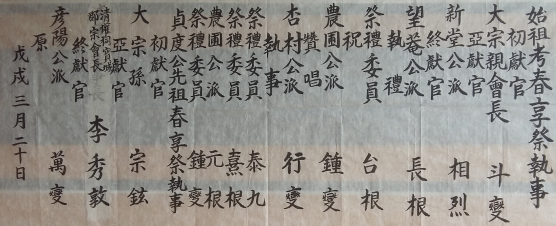 始祖考春享祭執事
初獻官
大宗親會長 斗燮
亞獻官
新堂公派 相烈
終獻官
望菴公派 長根
執禮
祭禮委員 台根
祝
農圃公派 鍾燮
贊唱
杏村公派 行燮
執事
祭禮委員 泰九
祭禮委員 熹根
農圃公派 元根
祭禮委員 鍾燮
貞度公先祖春享祭執事
初獻官
大宗孫 宗鉉
亞獻官
部宗會長 李秀敦
終獻官
彦陽公派 萬燮
原
戊戌三月二十日